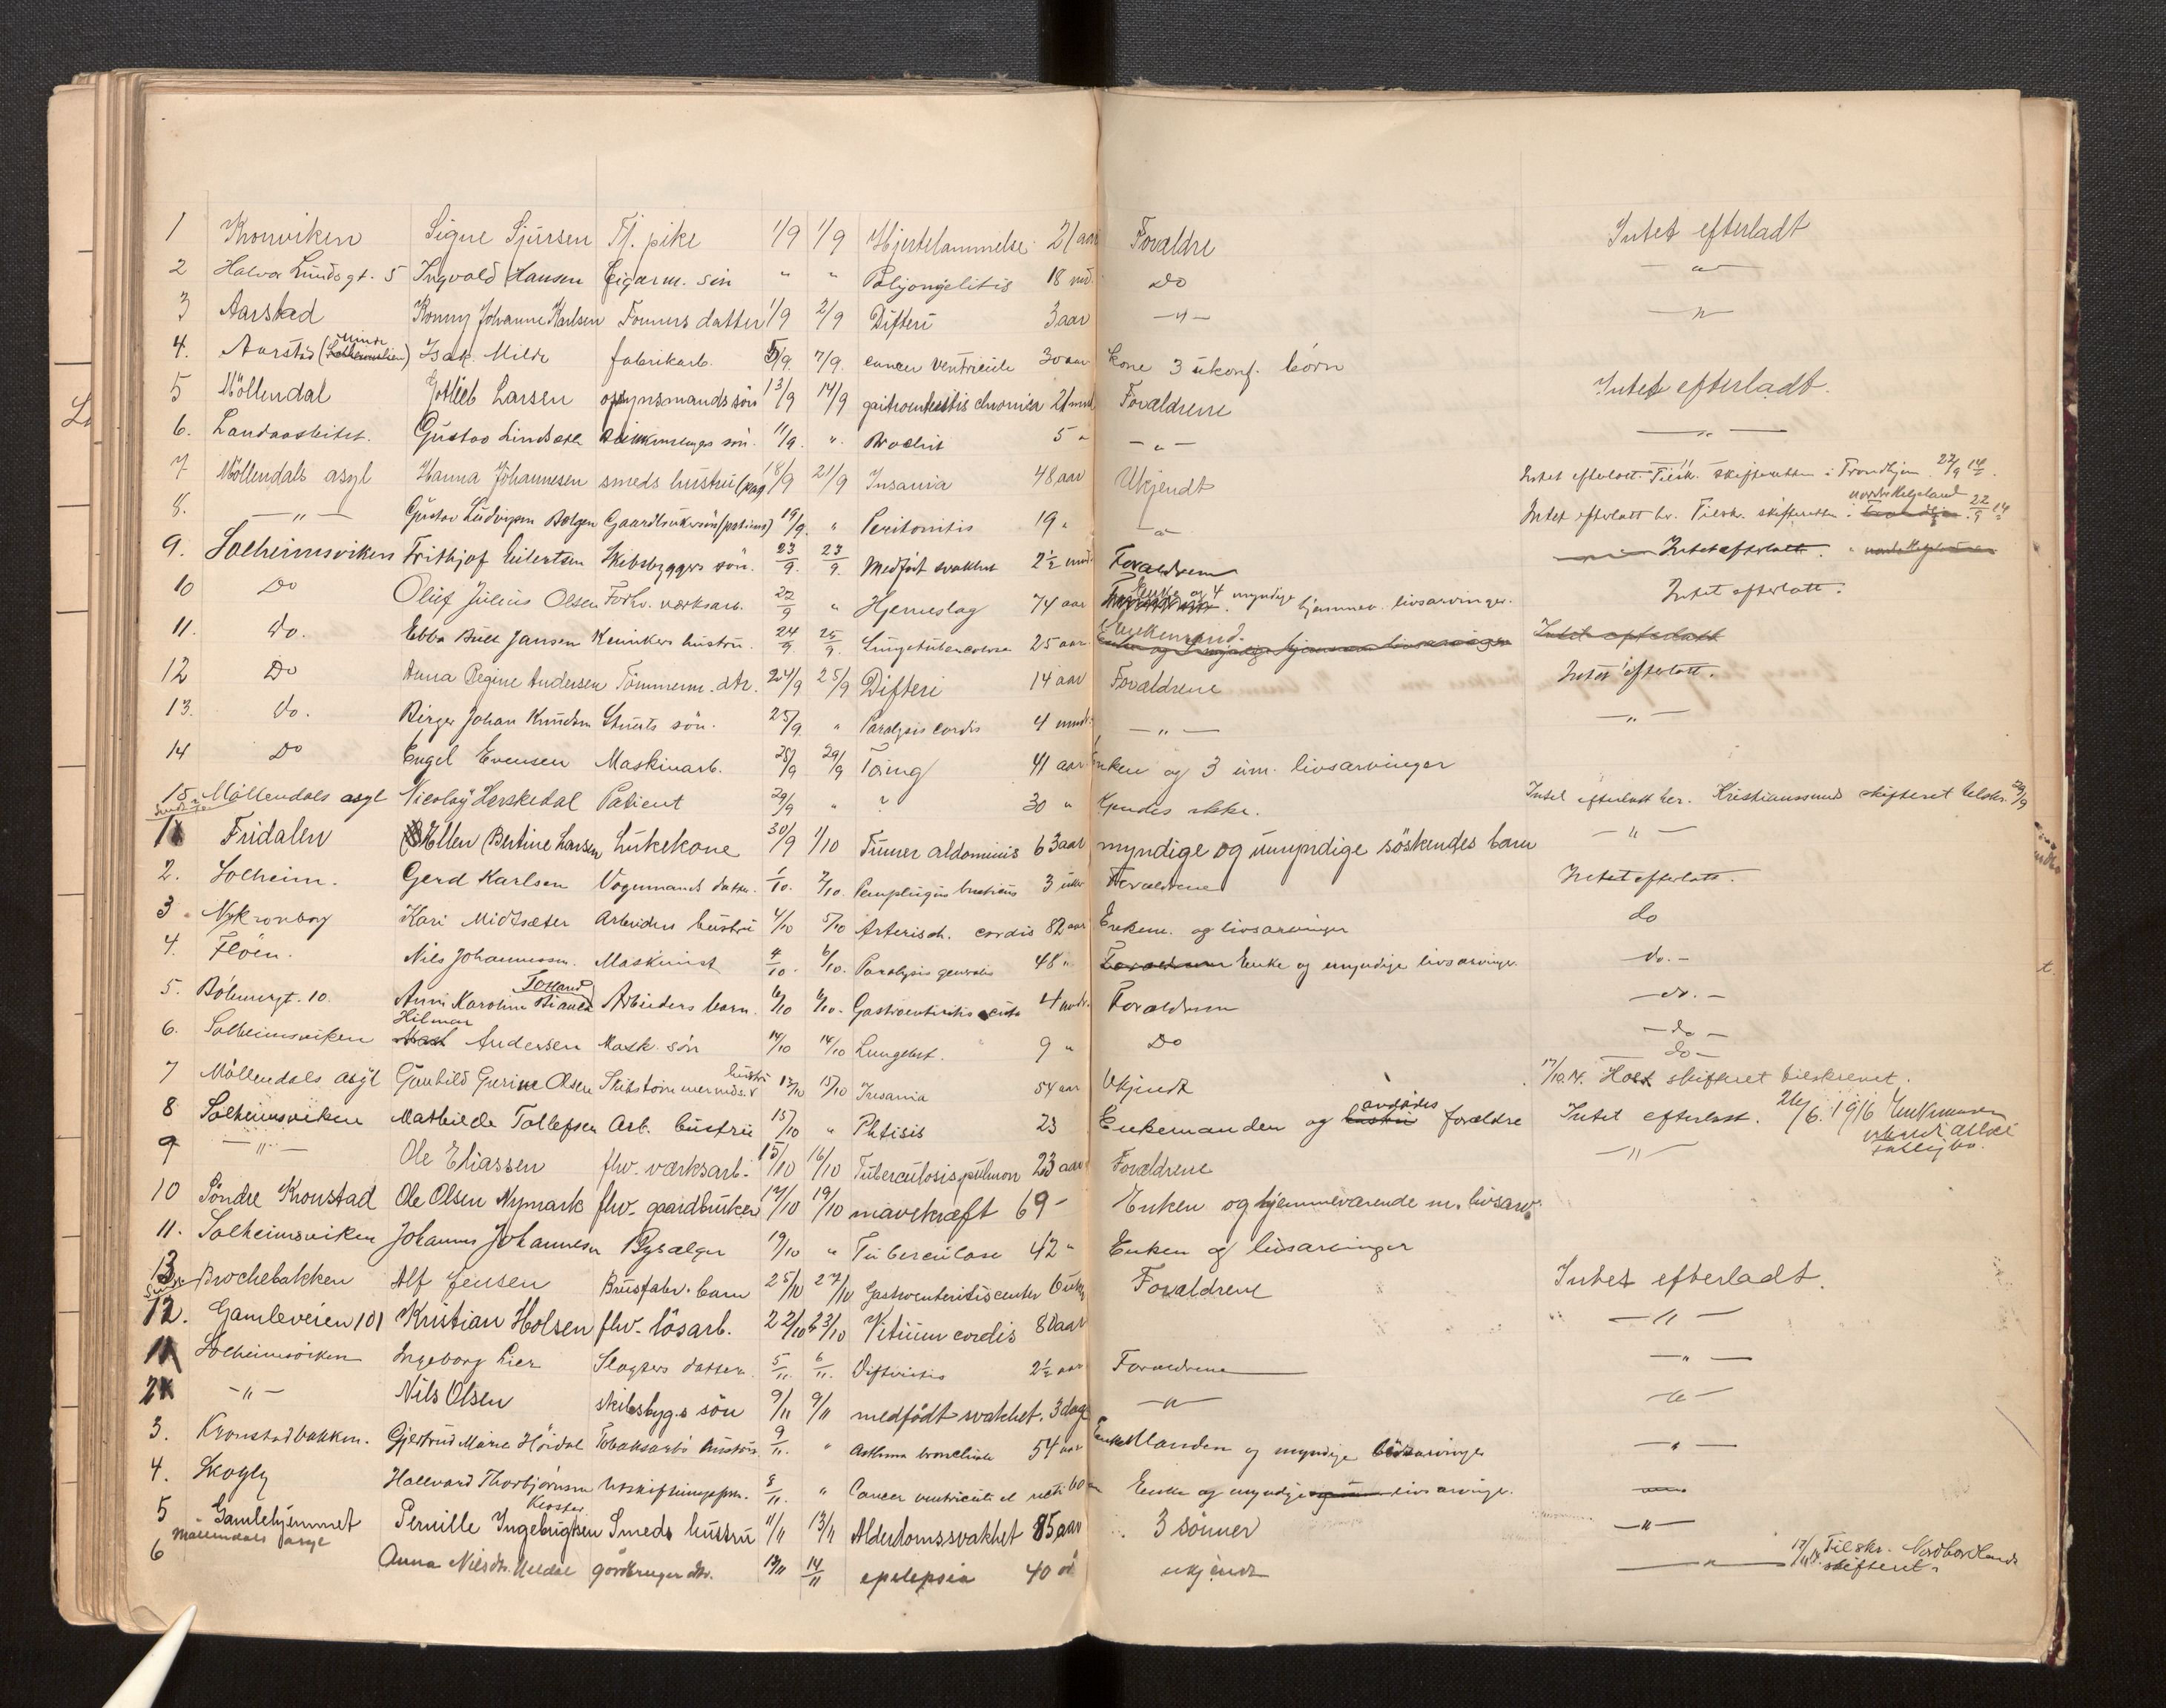 1 Kronviken Signe Sjursen Tj. pike 1/9 1/9 Hjertelammelse 21 aar Forældre Intet efterladt
2 Halvor Lunds gt. 5 Ingvold Hansen Eigarm. sön " " 18 md. Do — " —
3 Aarstad Ronny Johanne Karlsen Formers datter 1/9 2/9 Difteri 3 aar — " — — " —
4. Aarstad (Minde) Isak Milde fabrikarb. 5/9. 7/9. cancer ventricule 30 aar kone 3 ukonf. börn
5 Möllendal Gotlieb Larsen opsynsmands sön 13/9 14/9 chronica 21 mnd Forældrene Intet efterladt.
6. Landaasleitet. Gustav Lindseth sön. 11/9. ". 5 " — " — — " —
7 Möllendals asyl Hanna Johannesen smeds hustru 18/9 21/9 Insania 48 aar Ukjendt Intet efterlatt. Tilsk. skifteretten i Trondhjem 22/9 14.
8. — " — Gustav Ludvigsen Bolgen (patient) 19/9. " Peritonitis 19 " — " — Intet efterlatt her. Tilskr. skifteretten i nordre Helgeland 22/9 14
9. Solheimsviken Frithjof Eilertsen Skibsbyggers sön. 23/9. 23/9. Medfödt svakhet 2½ mnd. Forældrene Intet efterlatt.
10 Do Oluf Julius Olsen Forhv. værksarb. 22/9 " Hjerneslag 74 aar Enke og 4 myndige hjemmev. livsarvinger. Intet efterlatt.
11. do. Ebba Bull Jansen hustru. 24/9 25/9. Lungetuberculose 25 aar. Enkemand. Intet efterlatt
12 Do Anna Regine Andersen Tömmerm. dtr. 24/9 25/9 Difteri 14 aar Forældrene Intet efterlatt.
13. do. Birger Johan Knudsen Stuerts sön. 25/9. " Paralysis cordis 4 mndr. — " — — " —
14 Do Engel Evensen Maskinarb. 25/9 29/9 Tæring 41 aar. Enken og 3 um. livsarvinger
15. Möllendals asyl Nicolay Herskedal Patient 29/9 " ? 30 " Kjendes ikke. Intet efterlatt her. Kristianssunds skifteret tilskr. 29/9
1 Fridalen Ellen Bertine Larsen Enkekone 30/9 1/10 Tumer abdominis 63 aar myndige og umyndige söskendes barn — " —
2. Solheim. Gerd Karlsen Vognmands datter. 1/10. 2/10. 3 uker Forældrene Intet efterlatt.
3. Nykronborg Kari Midtsæter Arbeiders hustru 4/10 5/10 Arterisch. cordis 82 aar Enkem. og livsarvinger do
4. Flöen. Nils Johannessen. Maskinist 4/10. 6/10. Paralysis generalis 48 " Enke og umyndige livsarvinger. do. —
5. Böhmergt. 10. Anni Karoline Totland Arbeiders barn. 6/10 6/10. Gastroenteritis acuta 4 mndr. Forældrene — do. —
6. Solheimsviken Hilmar Andersen Mask. sön 14/10 14/10 Lungebet. 9 " Do — do —
— do —
7 Möllendals asyl Gunhild Gurine Olsen hustru 12/10 15/10 Insania 54 aar Ukjendt 17/10.14. Holt skifteret tilskrevet.
8 Solheimsviken Mathilde Tollefsen Arb. hustru 15/10 " Phtisis 23 Enkemanden og avdödes forældre Intet efterlatt. 26/6. 1916 Enkemanden
9 — " — Ole Eliassen fhv. værksarb. 15/10 16/10 Tuberculosis pulmon 23 aar Forældrene — " —
10 Söndre Kronstad Ole Olsen Nymark fhv. gaardbruker 17/10 19/10 mavekræft 69 — Enken og hjemmeværende m. livsarv.
11. Solheimsviken Johannes Johannesen 19/10 " Tuberculose 42 " Enken og livsarvinger
13 Brochebakken Alf Jensen Brusfabr. barn 25/10 27/10 6 uker Forældrene Intet efterladt.
12. Gamleveien 101 Kristian Holsen fhv. lösarb. 22/10 23/10 Vitium cordis 80 aar — " —
1 Solheimsviken Ingeborg Lier Slagters datter. 5/11. 6/11. 2½ aar Forældrene — " —
2 — " — Nils Olsen skibsbyg.s sön 9/11 9/11 medfödt svakhet. 3 dage — " — — " —
3. Kronstadbakken. Gjertrud Marie Hördal Tobaksarb. hustru 9/11. " Asthma bronchiale 54 aar Enkemanden og myndige livsarvinger — " —
4. Skogly Hallvard Thorbjörnsen 8/11. " Cancer ventriculi et 60 " Enke og myndige livsarvinger.
5 Gamlehjemmet Pernille Ingebrigtsen Kloster Smeds hustru 11/11 13/11 Alderdomssvakhet 85 aar 3 sönner — " —
6 Möllendals asyl Anna Nilsdtr. Uldal gårdbruger dtr. 13/11 14/11 epilepsia 40 å ukjendt — " — 17/11 14. Tilskr. Nordhordlands skifteret.